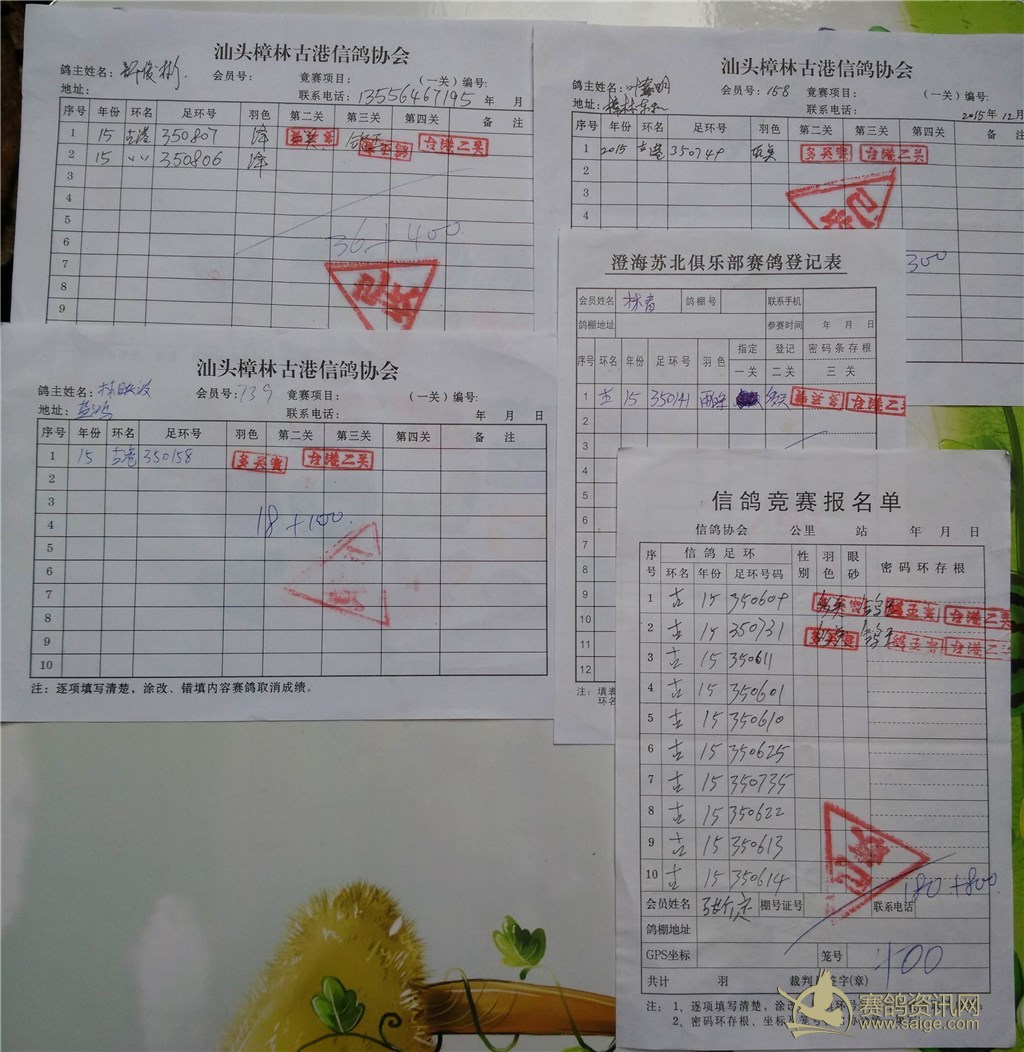 汕头樟林古港信鸽协会
鸽主姓名: 会员号: 竟赛项目: (一关)编号:
地址: 联系电话:13556467195 年 月
序号 年份 环名 足环号 羽色 第二关 第三关 第四关 备 注
1 15 古港 350807 绛 多关赛 台港二关
2 15 〃 350806 绛
3
4
5
6 36+400
7
8
9
汕头樟林古港信鸽协会
鸽主姓名: 会员号:158 竟赛项目: (一关)编号:
地址: 联系电话: 2015年12月
序号 年份 环名 足环号 羽色 第二关 第三关 第四关 备 注
1 2015 古港 350749 多关赛 台港二关
2
3
4
300
澄海苏北俱乐部赛鸽登记表
会员姓名 鸽棚号 联系手机
鸽棚地址 参赛时间 年 月 日
序号 环名 年份 足环号 羽色 指定 登记 密码条存根
一关 二关 三关
1 古 15 350141 多关赛 台港二关
2
3
4
5
6
7
8
9
10
11
12
注: 填
环名
汕头樟林古港信鸽协会
鸽主姓名:林映波 会员号:739 竟赛项目: (一关)编号:
地址: 联系电话: 年 月 日
序号 年份 环名 足环号 羽色 第二关 第三关 第四关 备 注
1 15 古港 350158 多关赛 台港二关
2
3
4 18+100
5
6
7
8
9
10
注:逐项填写清楚,涂改、错填内容赛鸽取消成绩。
信鸽竞赛报名单
信鸽协会 公里 站 年 月 日
序号 信鸽足环 性别 羽色 眼砂 密码环存根
环名 年份 足环号码
1 古 15 350609 多关赛 台港二关
2 古 15 350731 多关赛 台港二关
3 古 15 350611
4 古 15 350601
5 古 15 350610
6 古 15 350625
7 古 15 350735
8 古 15 350622
9 古 15 350613
10 古 15 350614
180+800
会员姓名 棚号证号 联系电话
鸽棚地址
GPS坐标 笼号 400
共计 羽 裁判员签字(章)
注: 1、逐项填写清楚,涂改
2、密码环存根、坐标
赛鸽资讯网
www.saige.com